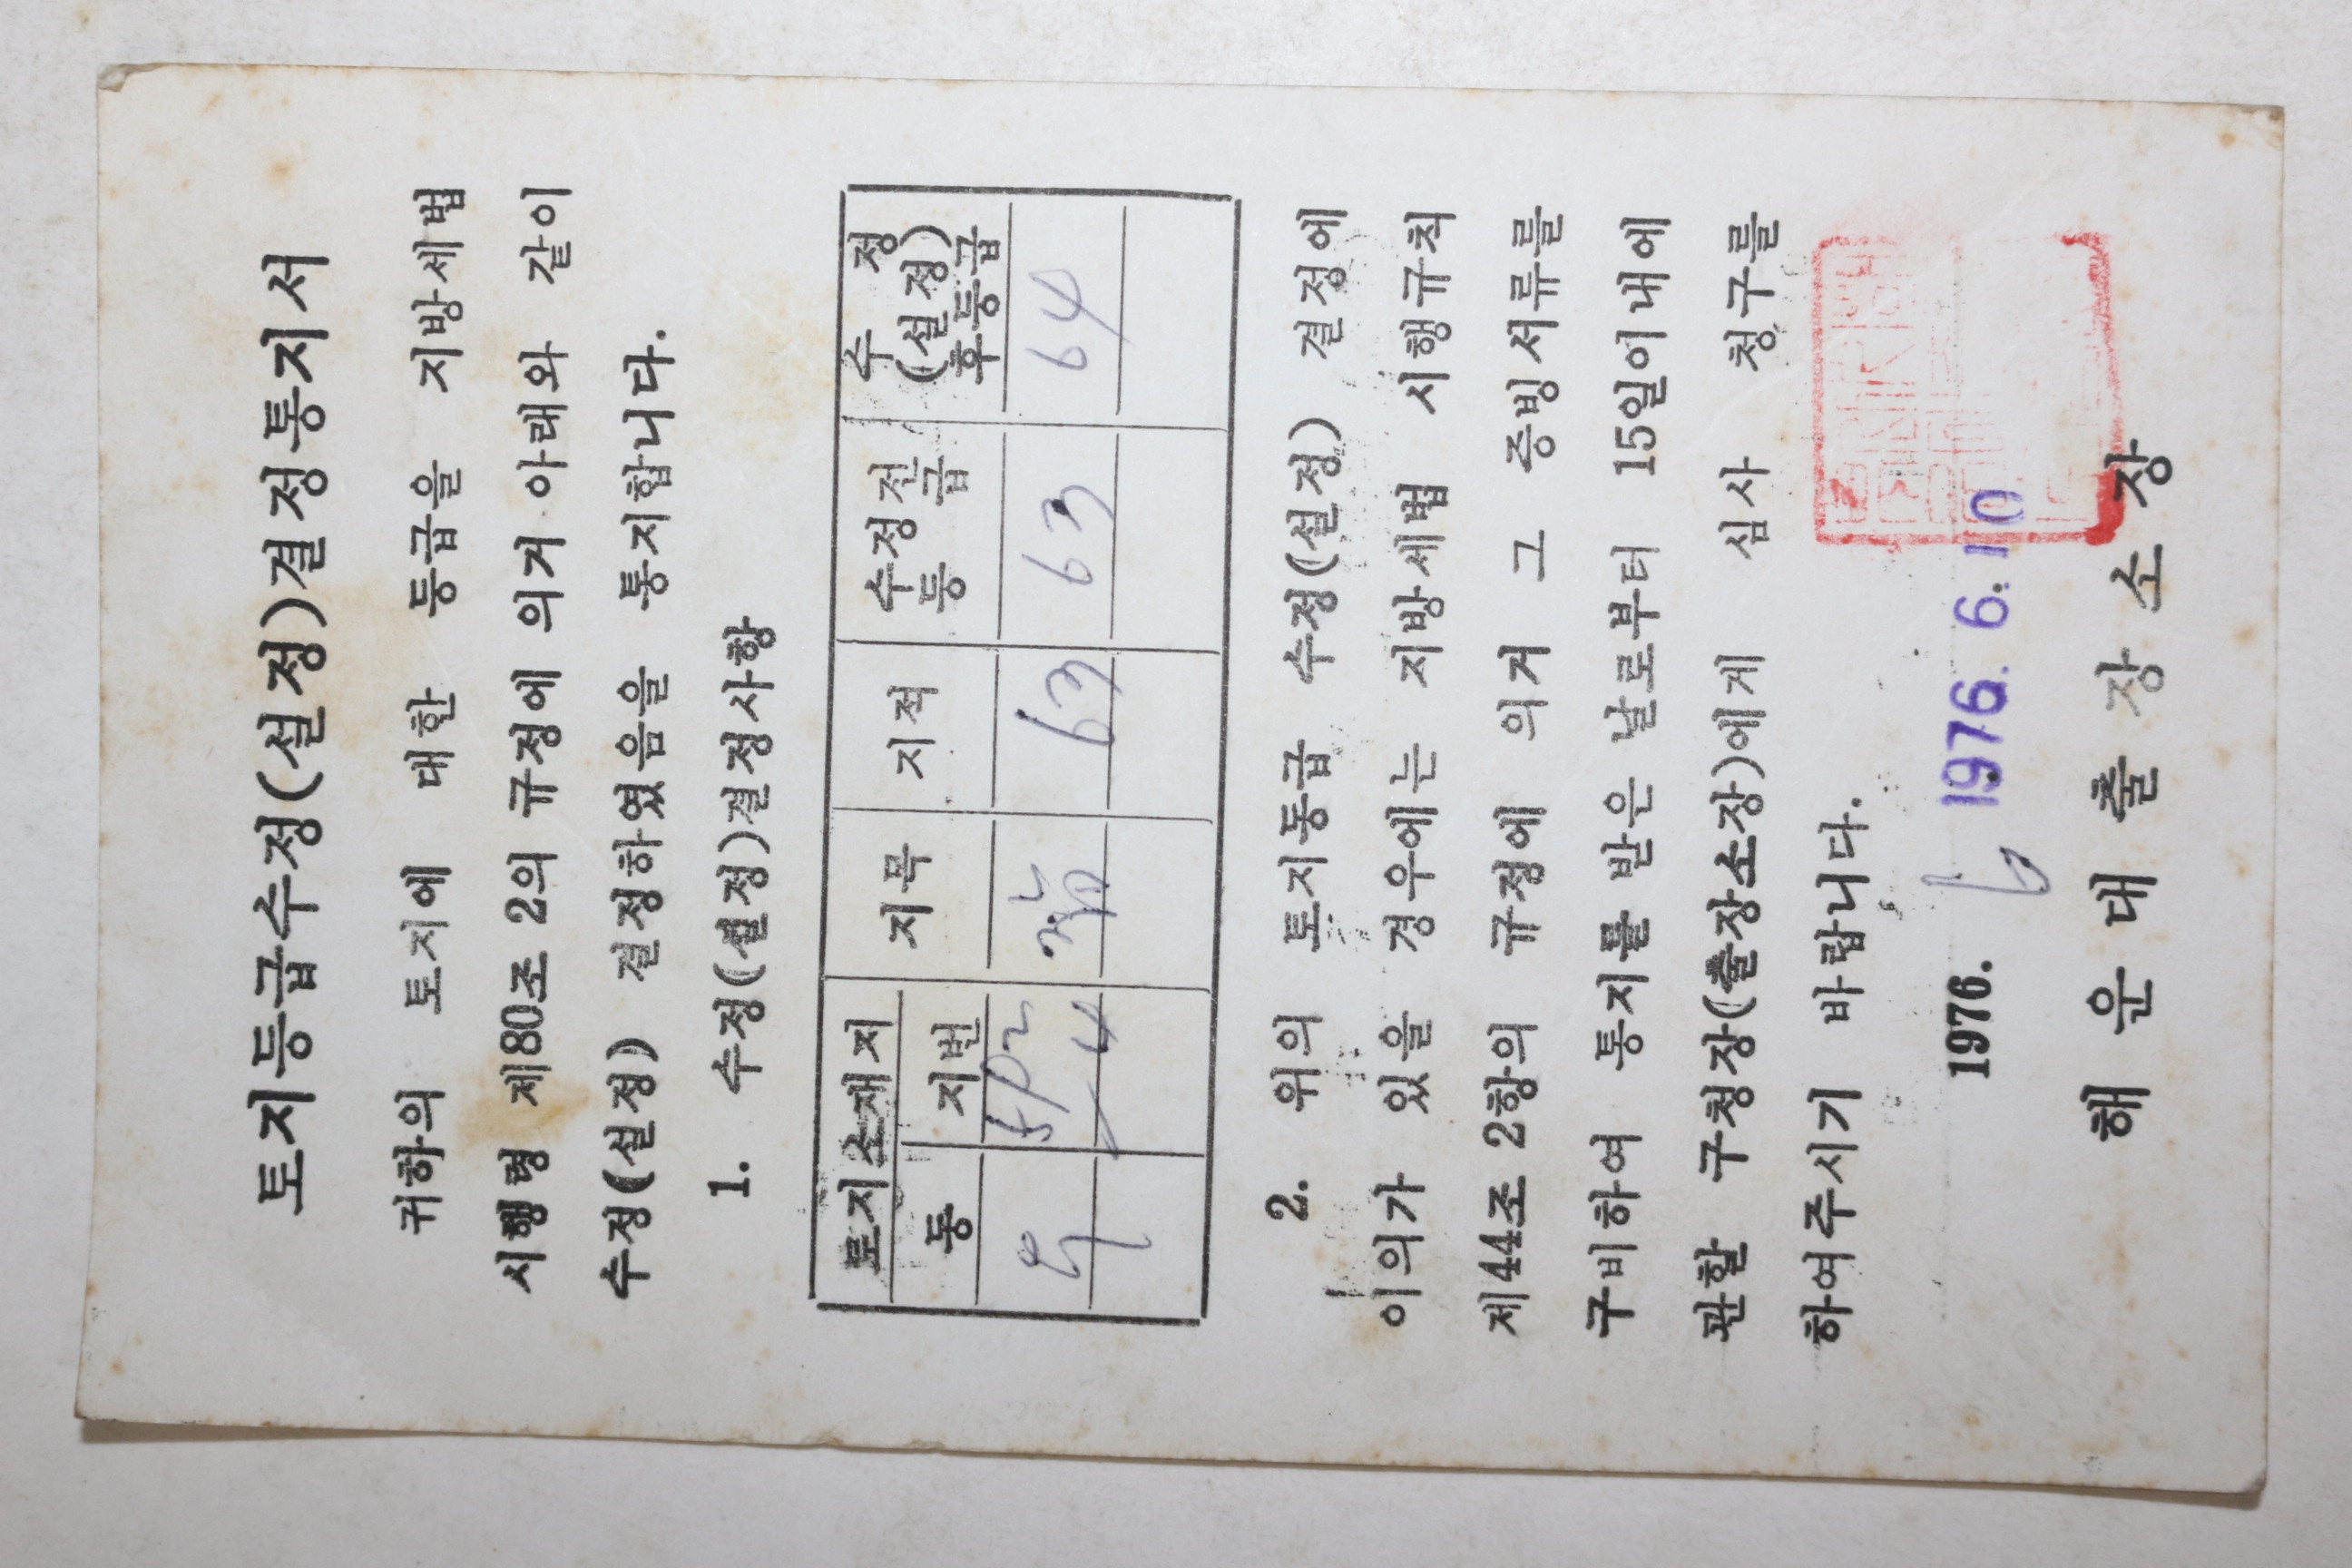 토지등급수정(설정)결정통지서
귀하의 토지에 대한 등급을 지방세법
시행령 제80조 2의 규정에 의거 아래와 같이
수정(설정) 결정하였음을 통지합니다.
1. 수정(설정)결정사항
토지소재지 지목 지적 수정전등급 수정(설정)후등급
동 지번
63 63 64
2. 위의 토지등급 수정(설정) 결정에
이의가 있을 경우에는 지방세법 시행규칙
제44조 2항의 규정에 의거 그 증빙서류를
구비하여 통지를 받은 날로부터 15일이내에
관할 구청장(출장소장)에게 심사 청구를
하여주시기 바랍니다.
1976. 6 1976. 6. 10
해운대출장소장